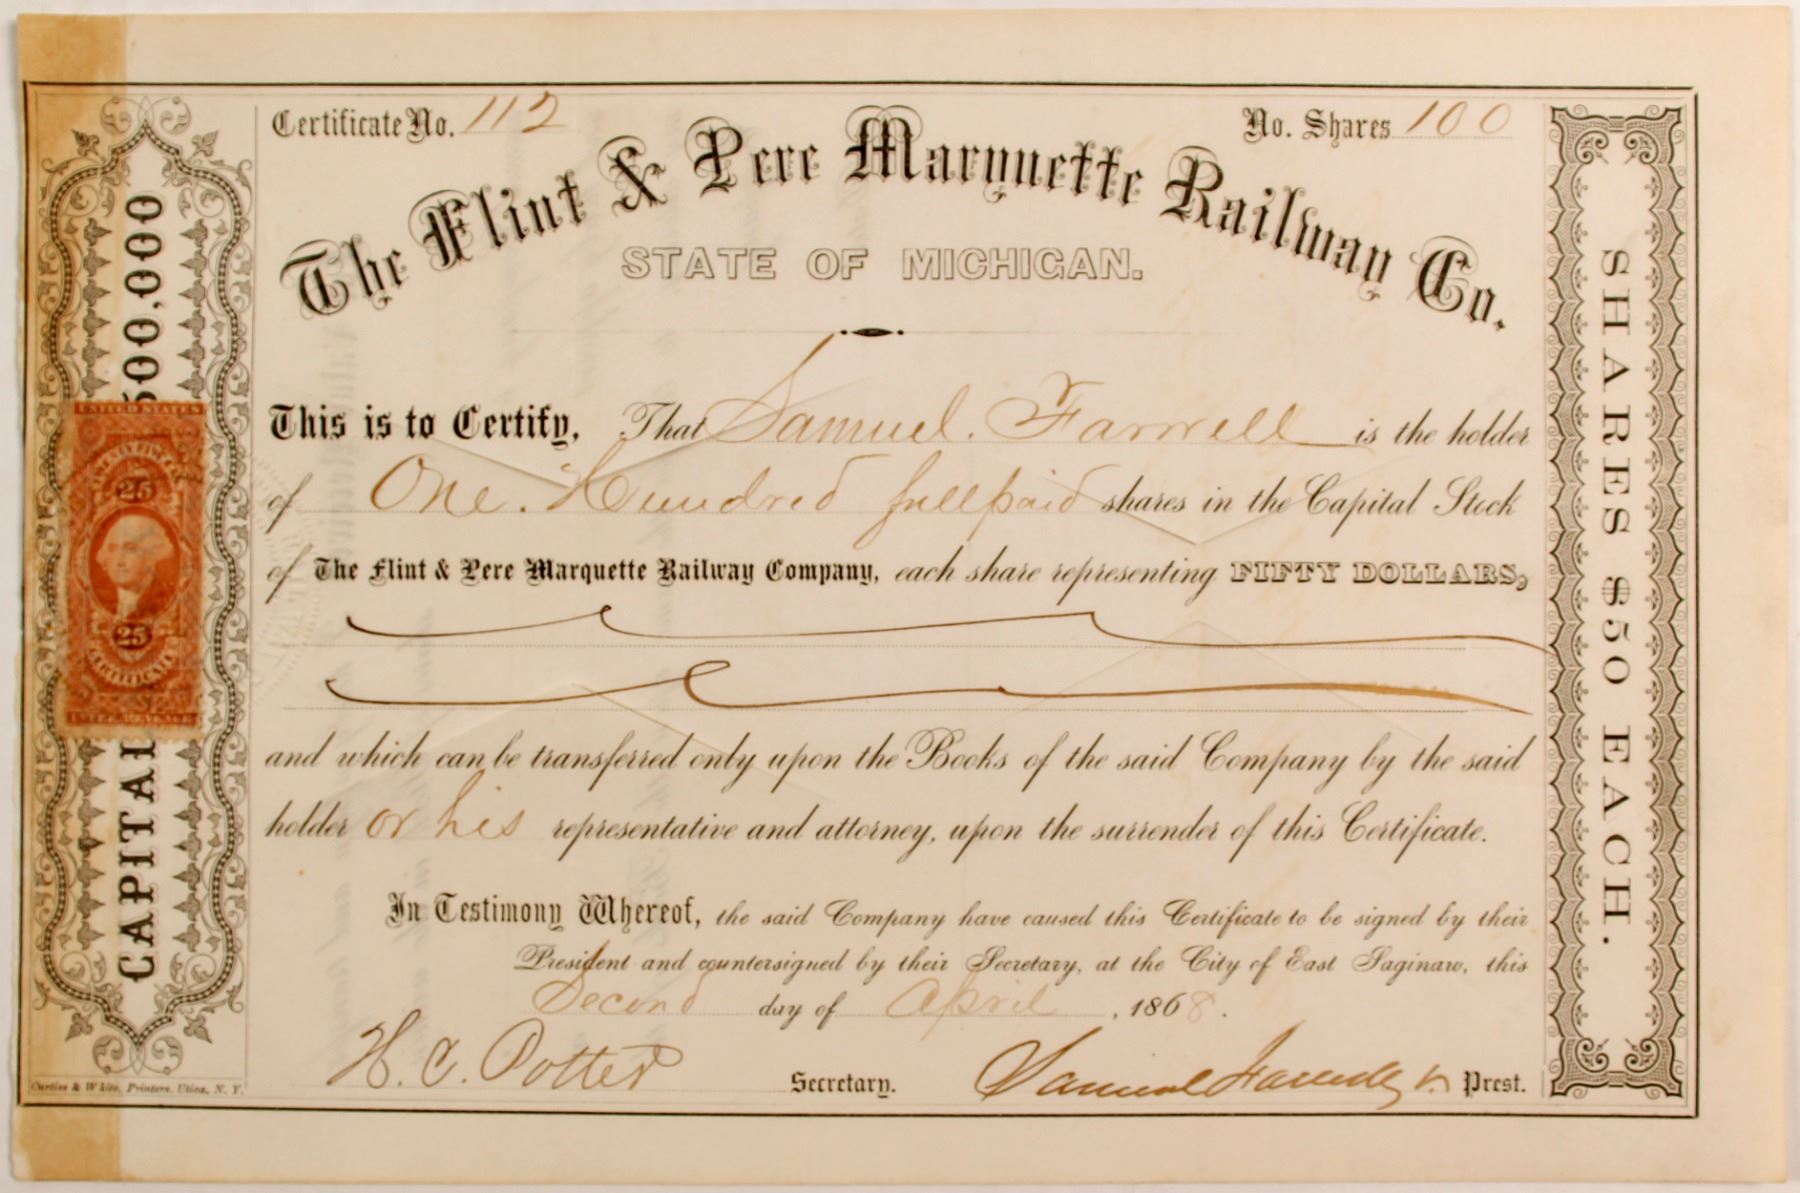 Certificate No. 112
No. Shares 100
The Flint & Pere Marquette Railway Co.
STATE OF MICHIGAN.
This is to Certify, That Samuel. Farwell is the holder
of One. Hundred full paid shares in the Capital Stock
of The Flint & Pere Marquette Railway Company, each share representing FIFTY DOLLARS,
and which can be transferred only upon the Books of the said Company by the said
holder or his representative and attorney, upon the surrender of this Certificate.
In Testimony Whereof, the said Company have caused this Certificate to be signed by their
President and countersigned by their Secretary, at the City of East Saginaw, this
Second day of April, 1868.
H. C. Potter Secretary. Samuel Farwell Prest.
CAPITAL 500,000
UNITED STATES
25
25
CERTIFICATE
INTER. REVENUE
SHARES $50 EACH.
Curtiss & White, Printers, Utica, N. Y.